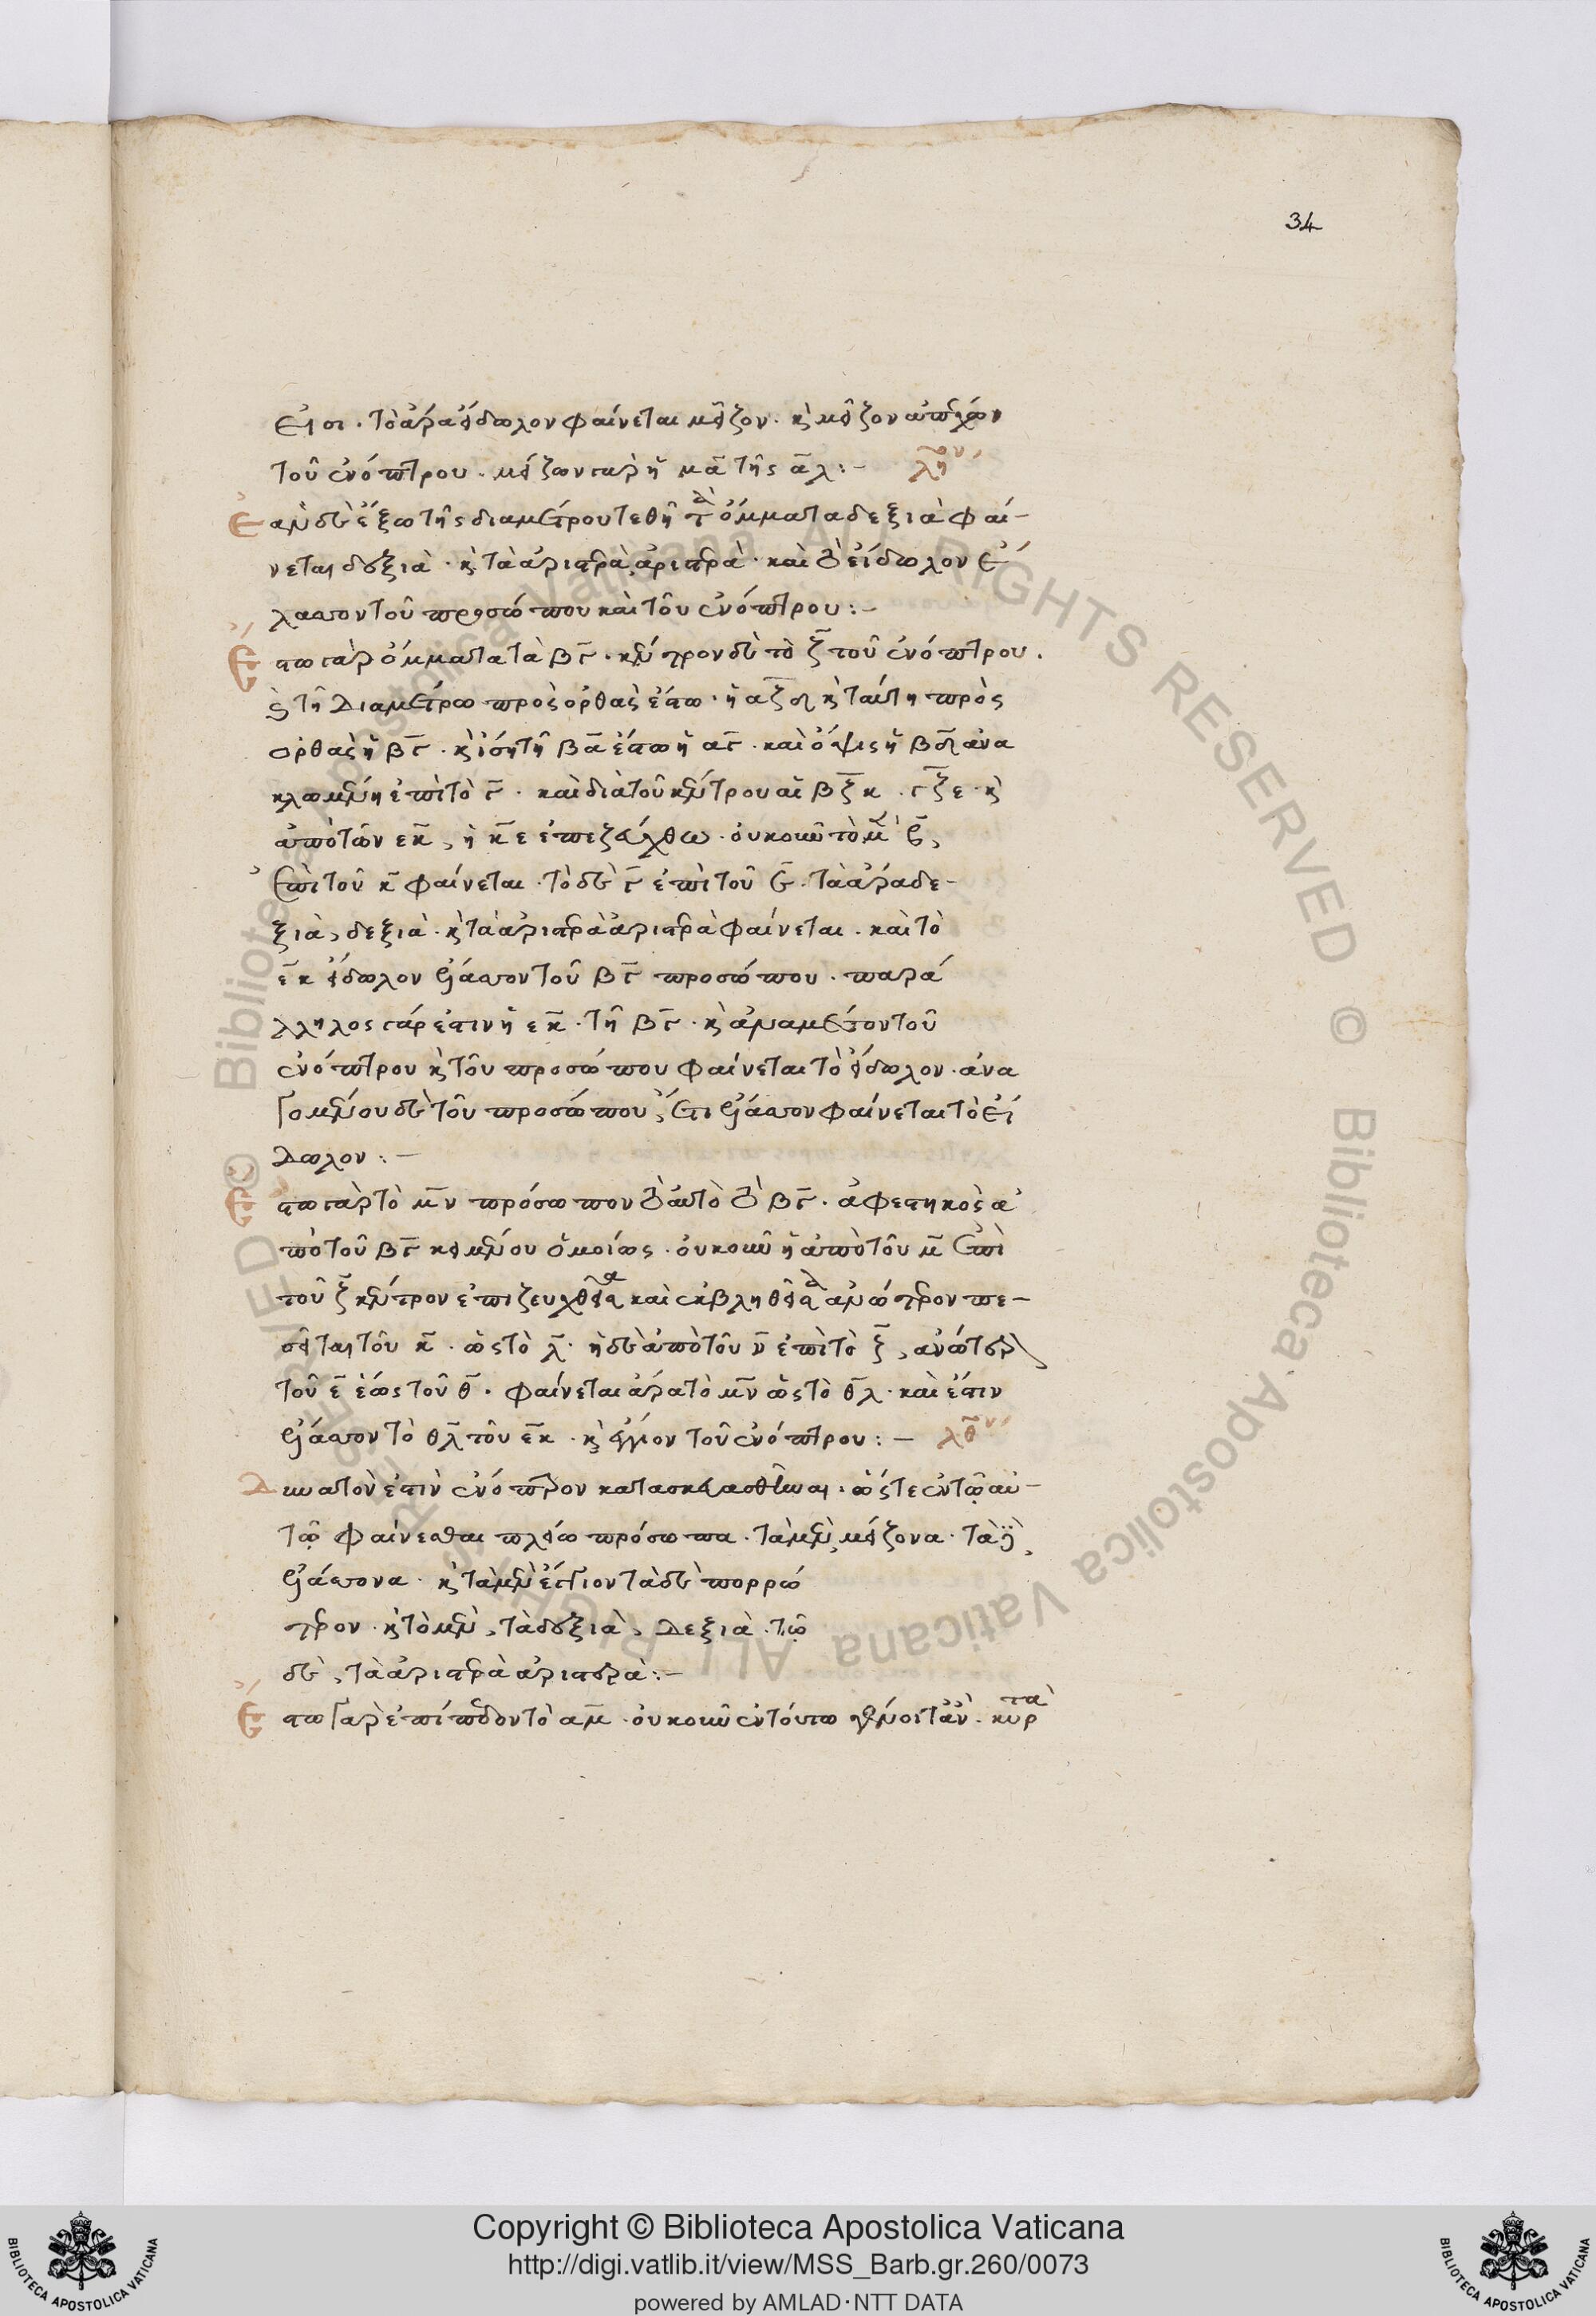 34
εἰσι. τὸ ἄρα εἴδωλον φαίνεται μεῖζον. κ̀ μεῖζον ἀπέχον
τοῦ ἐνόπτρου. μείζων γὰρ ἡ μα τῆς αλ:-
λη
Ἐὰν δὲ ἔξω τῆς διαμέτρου τεθῆ τὰ ὄμματα δεξιὰ φαί-
νεται δεξιὰ. κ̀ τὰ ἀριστερὰ, ἀριστερὰ. καὶ τὸ εἴδωλον ἔ
λασσον τοῦ προσώπου καὶ τοῦ ἐνόπτρου:-
Ἔστω γὰρ ὄμματα τὰ βγ. κέντρον δὲ τὸ ξ τοῦ ἐνόπτρου.
κ̀ τῆ διαμέτρω πρὸς ὀρθὰς ἔστω. ἡ αξδ κ̀ ταύτη πρὸς
ὀρθὰς ἡ βγ. κ̀ ἴση τῆ βα ἔστω ἡ αγ. καὶ ὄψις ἡ βδ ἀνα
κλωμένη ἐπὶ τὸ γ. καὶ διὰ τοῦ κέντρου αἱ βξκ. γξε. κ̀
ἀπὸ τῶν εκ, ἡ κε ἐπεζεύχθω. οὐκοῦν τὸ μὲν β,
ἐπὶ τοῦ κ φαίνεται. τὸ δὲ γ ἐπὶ τοῦ ε. τὰ ἄρα δε-
ξιὰ, δεξιὰ. κ̀ τὰ ἀριστερὰ ἀριστερὰ φαίνεται. καὶ τὸ
εκ εἴδωλον ἔλασσον τοῦ βγ προσώπου. παρά
λληλος γάρ ἐστιν ἡ εκ. τῆ βγ. κ̀ ἀνὰ μέσον τοῦ
ἐνόπτρου κ̀ τοῦ προσώπου φαίνεται τὸ εἴδωλον. ἀνα
γομένου δὲ τοῦ προσώπου, ἔτι ἔλασσον φαίνεται τὸ εἴ
δωλον:-
Ἔστω γὰρ τὸ μν πρόσωπον τὸ αὐτὸ τὸ βγ. ἀφεστηκὸς ἀ
πὸ τοῦ βγ κειμένου ὁμοίως. οὐκοῦν ἡ ἀπὸ τοῦ μ ἐπὶ
τοῦ ξ κέντρον ἐπιζευχθεῖσα καὶ ἐκβληθεῖσα ἀνώτερον πε-
σεῖται τοῦ κ. ὡς τὸ λ. ἡ δὲ ἀπὸ τοῦ ν ἐπὶ τὸ ξ, ἀνώτερ
τοῦ ε ἕως τοῦ θ. φαίνεται ἄρα τὸ μν ὡς τὸ θλ. καὶ ἔστιν
ἔλασσον τὸ θλ τοῦ εκ. κ̀ ἔγγιον τοῦ ἐνόπτρου:-
λθ
Δυνατὸν ἐστὶν ἐνόπτρον κατασκευασθῆναι. ὥστε ἐν τῷ αὐ-
τῷ φαίνεσθαι πλείω πρόσωπα. τὰ μὲν, μείζονα. τὰ δὲ,
ἐλάσσονα. κ̀ τὰ μὲν ἔγγιον τὰ δὲ πορρώ
τερον. κ̀ τὸ μὲν, τὰ δεξιὰ, δεξιὰ. τῷ
δὲ, τὰ ἀριστερὰ ἀριστερὰ:-
Ἔστω γὰρ ἐπίπεδον τὸ αμ. οὐκοῦν ἐν τούτω γένοιτ' ἂν. κυρτὰ
Copyright © Biblioteca Apostolica Vaticana
http://digi.vatlib.it/view/MSS_Barb.gr.260/0073
powered by AMLAD·NTT DATA